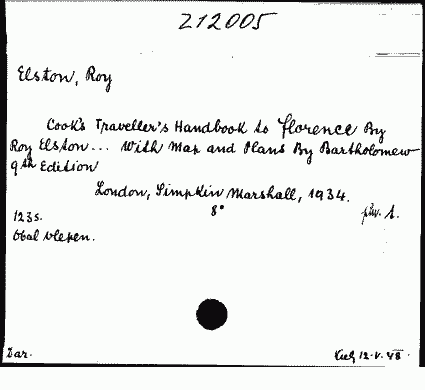 Z12005
Elston, Roy
Cook's Traveller's Handbook to Florence By
Roy Elston... With Map and Plans By Bartholomew
9th Edition
London, Simpkin Marshall, 1934.
8°
123s.
Obal vlepen.
Dar.
12.V.48